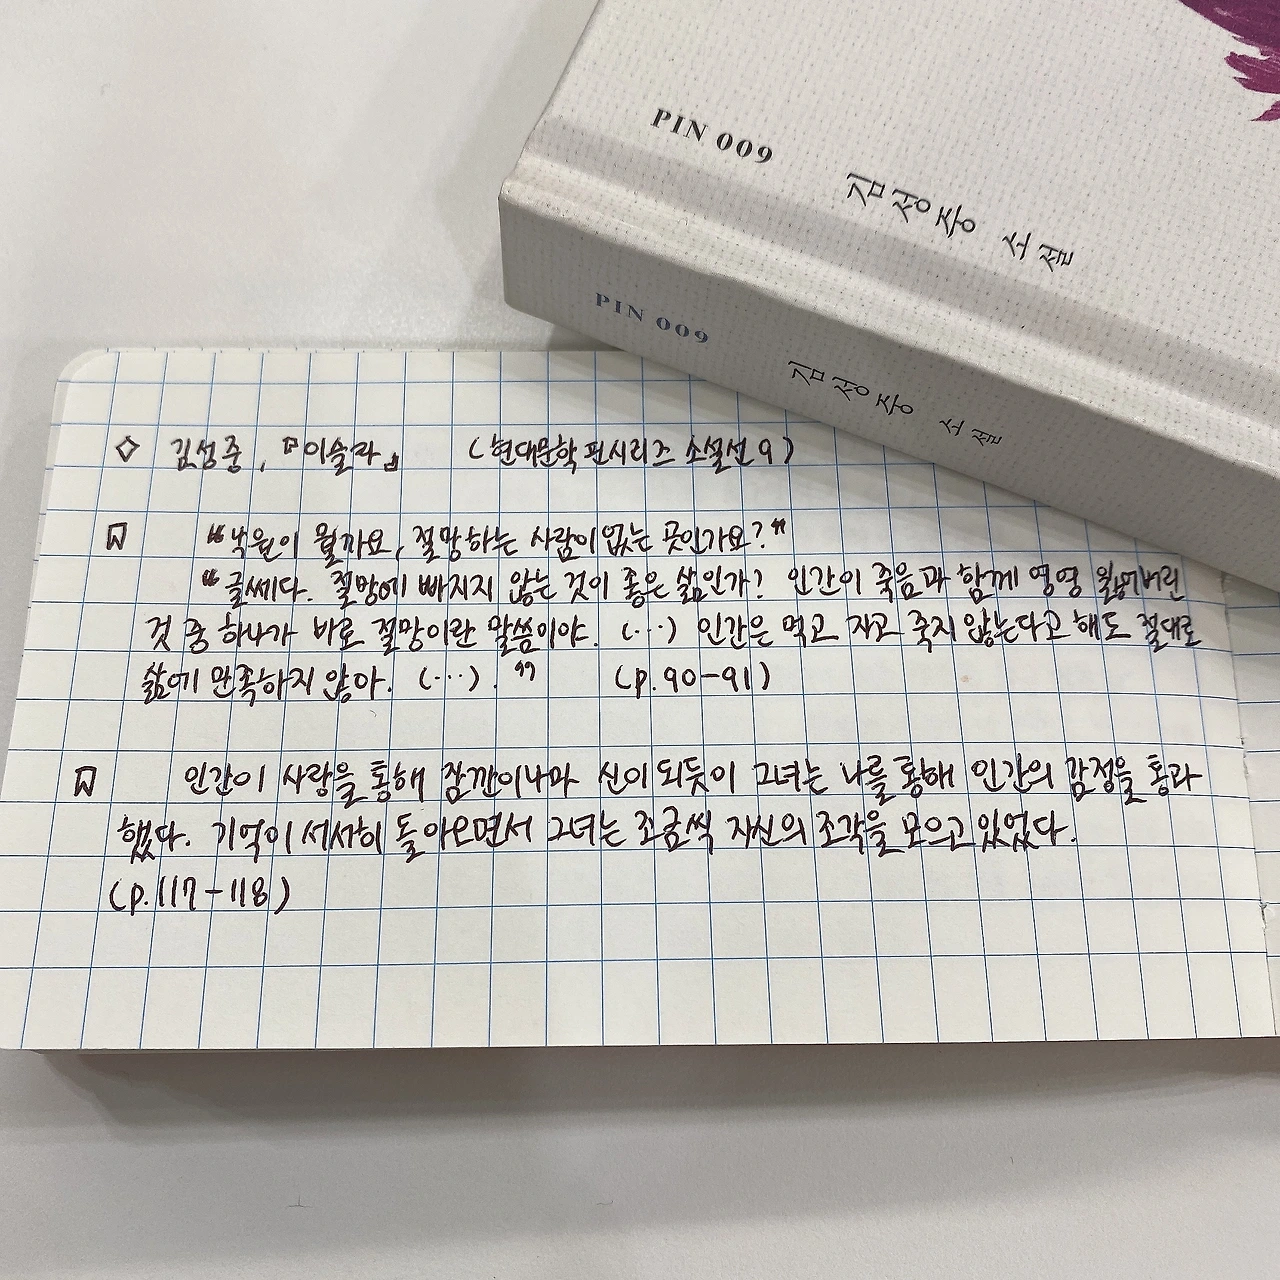 PIN 009
김성중 소설
PIN 009
김성중 소설
◇ 김성중, 『이슬라』 (현대문학 핀시리즈 소설선 9)
“낙원이 뭘까요, 절망하는 사람이 없는 곳인가요?”
“글쎄다. 절망에 빠지지 않는 것이 좋은 삶인가? 인간이 죽음과 함께 영영 잃어버린
것 중 하나가 바로 절망이란 말씀이야. (…) 인간은 먹고 자고 죽지 않는다고 해도 절대로
삶에 만족하지 않아. (…).” (p.90-91)
인간이 사랑을 통해 잠깐이나마 신이 되듯이 그녀는 나를 통해 인간의 감정을 통과
했다. 기억이 서서히 돌아오면서 그녀는 조금씩 자신의 조각을 모으고 있었다.
(p.117-118)